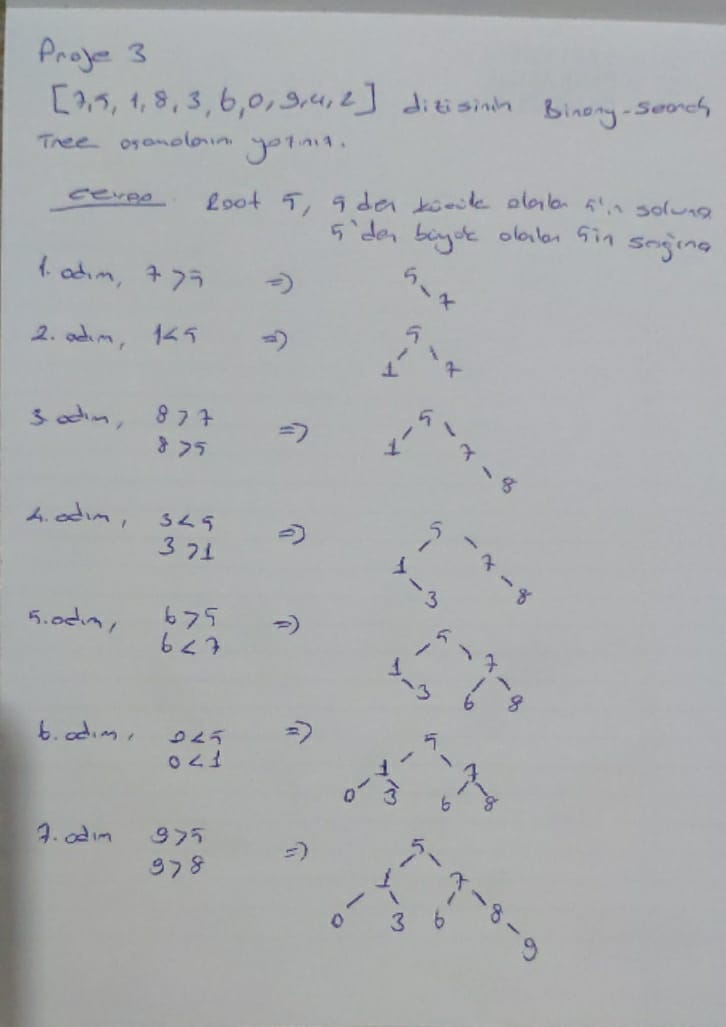 Proje 3
[7,5, 1,8,3,6,0,9,4,2] dizisinin Binary-Search
Tree aşamalarını yazınız.
cevap Root 5, 5 den küçük olanlar 5'in soluna
5'den büyük olanlar 5in sağına
1. adım, 7>5 =>
5
7
2. adım, 1<5 =>
5
1 7
3. adım, 8>7
8>5 =>
5
1 7
8
4. adım, 3<5
3>1 =>
5
1 7
3 8
5. adım, 6>5 =>
6<7
5
1 7
3 6 8
6. adım, 0<5 =>
0<1
5
1 7
0 3 6 8
7. adım 9>5
9>8 =>
5
1 7
0 3 6 8
9